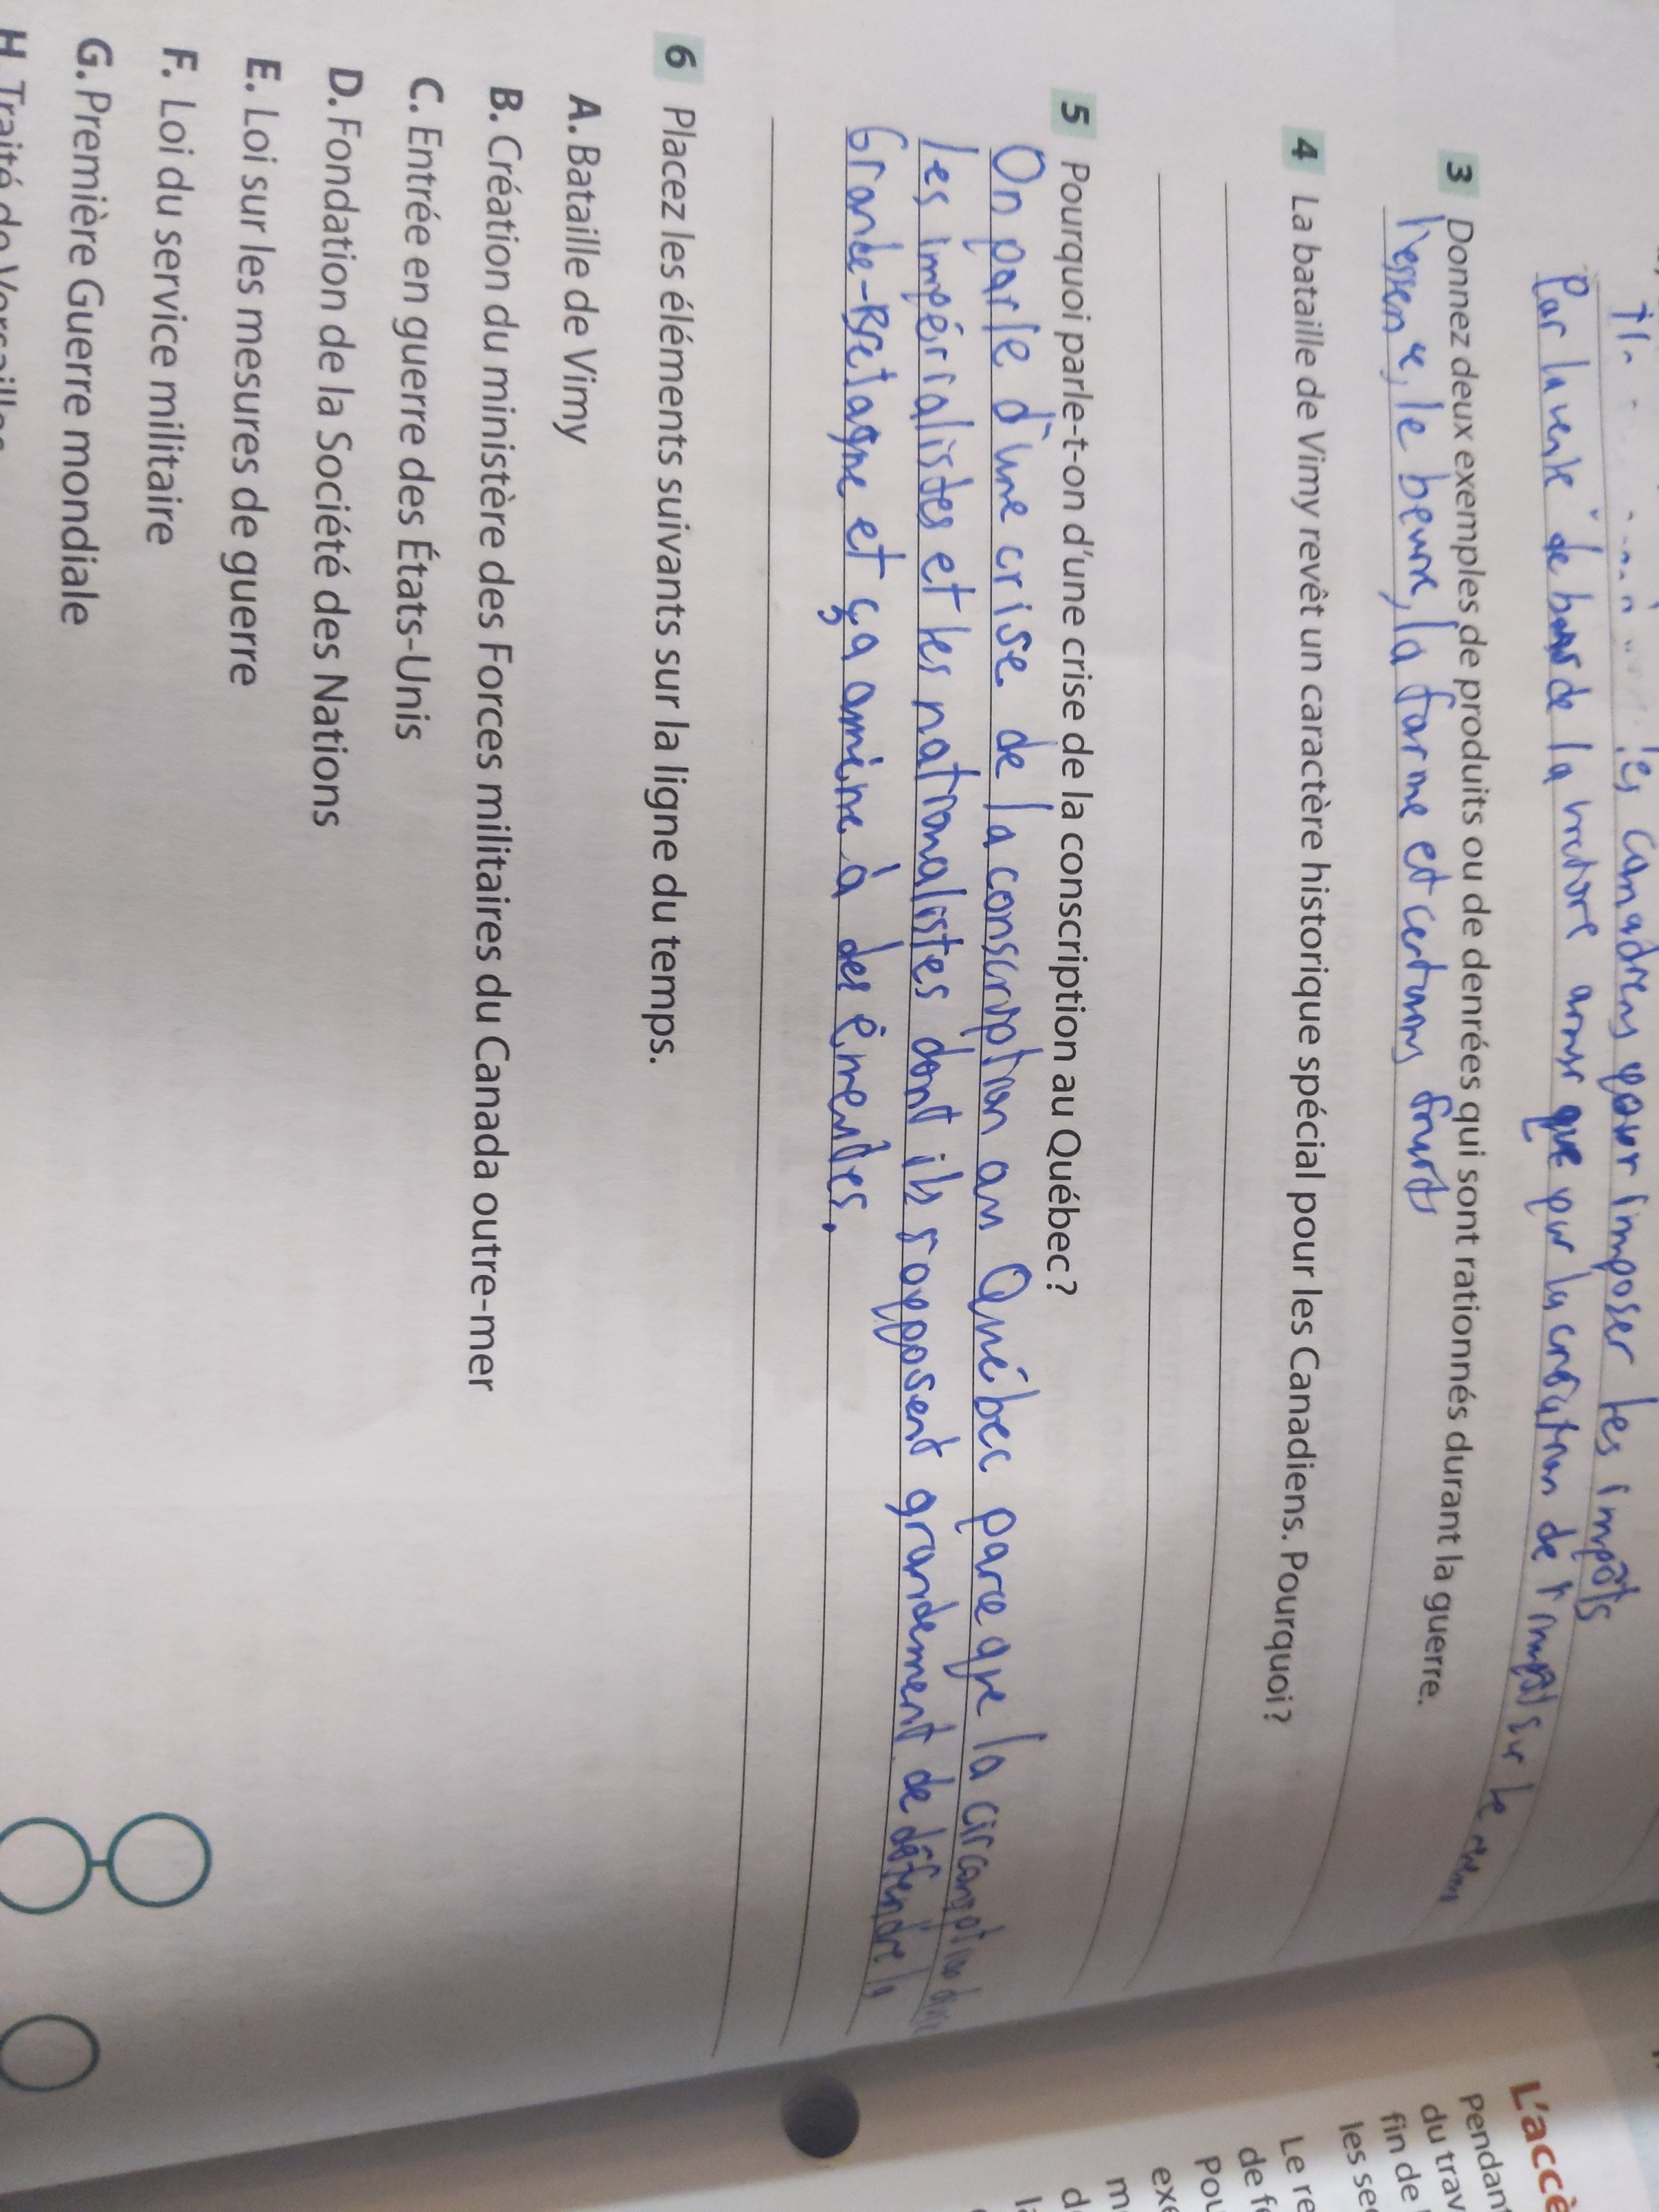 les canadiens pour imposer les impôts
Par la vente de bons de la victoire ainsi que par la création de l'impôt sur le
3 Donnez deux exemples de produits ou de denrées qui sont rationnés durant la guerre.
l'essence, le beurre, la farine et certains fruits
4 La bataille de Vimy revêt un caractère historique spécial pour les Canadiens. Pourquoi?
5 Pourquoi parle-t-on d'une crise de la conscription au Québec?
On parle d'une crise de la conscription au Québec parce que la
les impérialistes et les nationalistes dont ils s'opposent grandement de défendre la
Grande-Bretagne et ça amène à des émeutes.
6 Placez les éléments suivants sur la ligne du temps.
A. Bataille de Vimy
B. Création du ministère des Forces militaires du Canada outre-mer
C. Entrée en guerre des États-Unis
D. Fondation de la Société des Nations
E. Loi sur les mesures de guerre
F. Loi du service militaire
G. Première Guerre mondiale
H. Traité de Versailles
L'accè
Pendant
du trav
fin de
les se
Le re
de f
Pou
ex
m
d